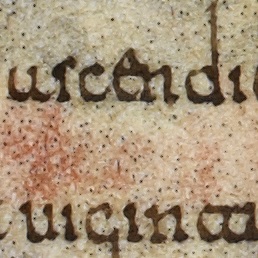 uſcendi
uiginta